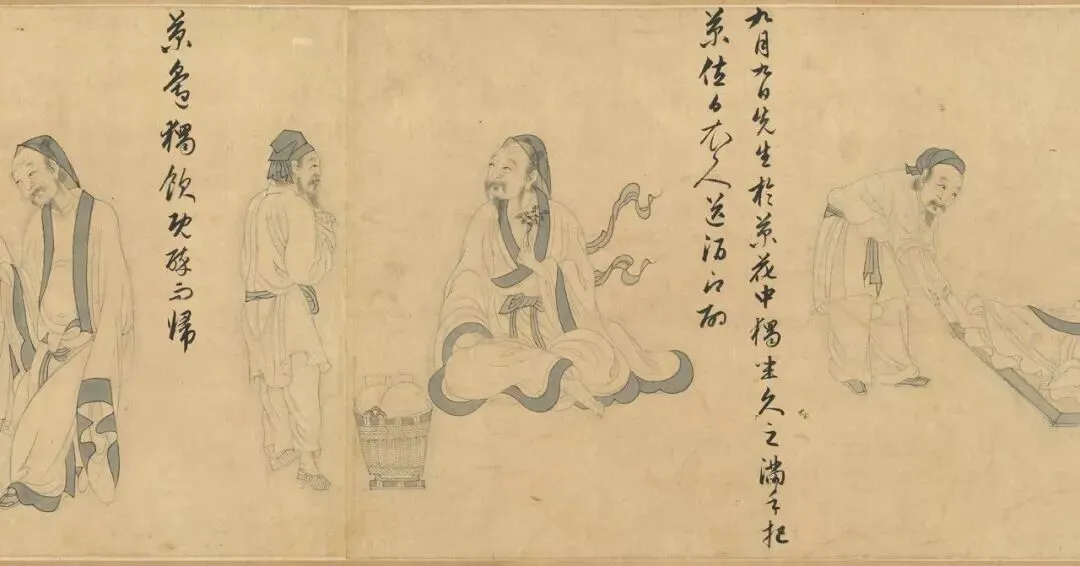 九月九日先生於菊花中獨坐久之滿手把
菊值白衣人送酒即酌
菊邊獨飲既醉而歸